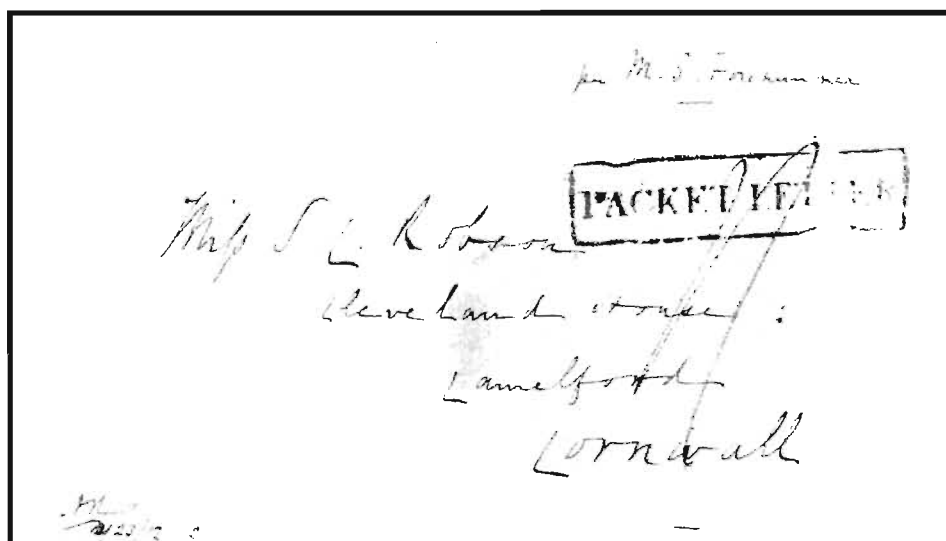 per M. S. Forerunner
PACKET LETTER
Miſs S L. Robson
Cleveland House :
Camelford
Cornwall